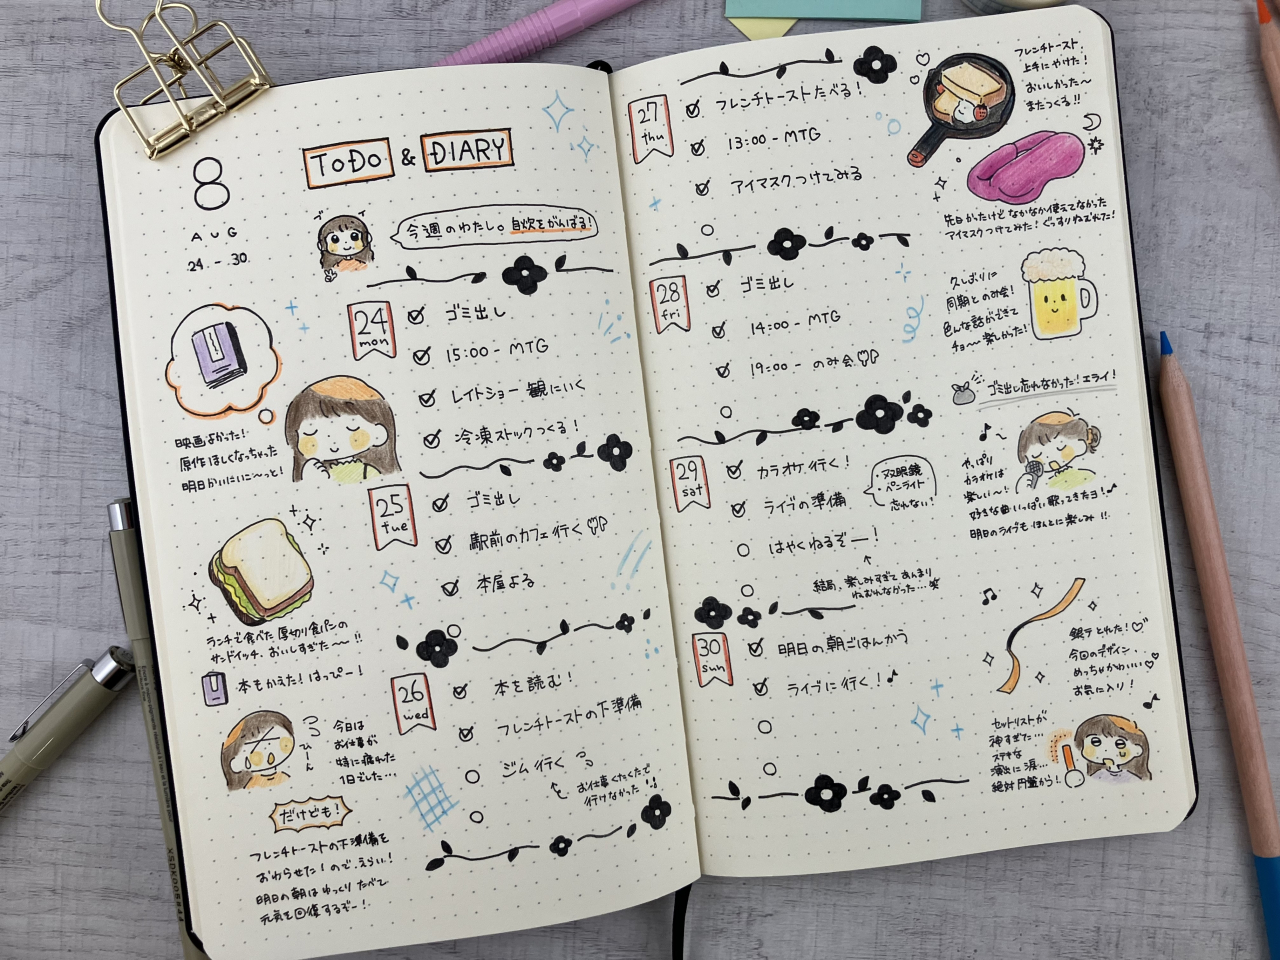 8
AUG
24 - 30
ToDo & DIARY
今週のわたし。自炊をがんばる!
24
mon
ゴミ出し
15:00 - MTG
レイトショー 観にいく
冷凍ストックつくる!
映画よかった!
原作ほしくなっちゃった
明日かいにいこ〜っと!
25
tue
ゴミ出し
駅前のカフェ行く
本屋よる
ランチで食べた厚切り食パンの
サンドイッチ、おいしすぎた〜〜!!
本もかえた!はっぴー!
26
wed
本を読む!
フレンチトーストの下準備
ジム行く
お仕事くたくたで
行けなかった!!
ひーん
今日は
お仕事が
特に疲れた
1日でした…
だけども!
フレンチトーストの下準備を
おわらせた!のでえらい!
明日の朝はゆっくりたべて
元気を回復するぞー!
27
thu
フレンチトーストたべる!
13:00 - MTG
アイマスクつけてみる
フレンチトースト、
上手にやけた!
おいしかった〜
またつくる!!
先日かったけどなかなか使えてなかった
アイマスクつけてみた!ぐっすりねむれた!
28
fri
ゴミ出し
14:00 - MTG
19:00 - のみ会
久しぶりに
同期とのみ会!
色んな話ができて
チョ〜〜楽しかった!
ゴミ出し忘れなかった!エライ!
29
sat
カラオケ行く!
ライブの準備
はやくねるぞー!
双眼鏡
ペンライト
忘れない!
結局、楽しみすぎてあんまり
ねむれなかった…
やっぱり
カラオケは
楽しい〜!
好きな曲いっぱい歌ってきたヨ!
明日のライブもほんとに楽しみ!!
30
sun
明日の朝ごはんかう
ライブに行く!
銀テとれた!
今回のデザイン、
めっちゃかわいい
お気に入り!
セットリストが
神すぎた…
ステキな
演出に涙…
絶対円盤から!